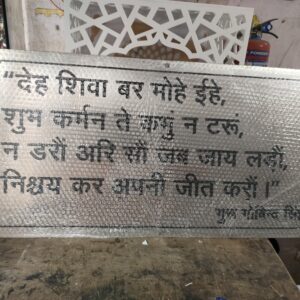 “देह शिवा बर मोहे ईहे,
शुभ कर्मन ते कभुं न टरूं,
न डरौं अरि सौं जब जाय लड़ौं,
निश्चय कर अपनी जीत करौं।”
गुरू गोबिन्द